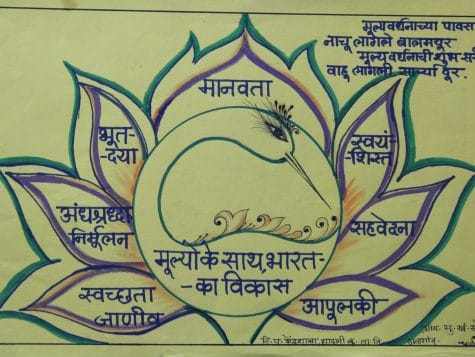 मूल्यवर्धनाच्या पावस
नाचू लागले बालमयूर
मूल्यवर्धनाची शुभ
वाढू लागली साऱ्या दूर-
मानवता
भूत-
दया
स्वयं-
शिस्त
अंधश्रध्दा
निर्मूलन
सहवेदना
मूल्यों के साथ, भारत-
-का विकास
स्वच्छता
जाणीव
आपूलकी